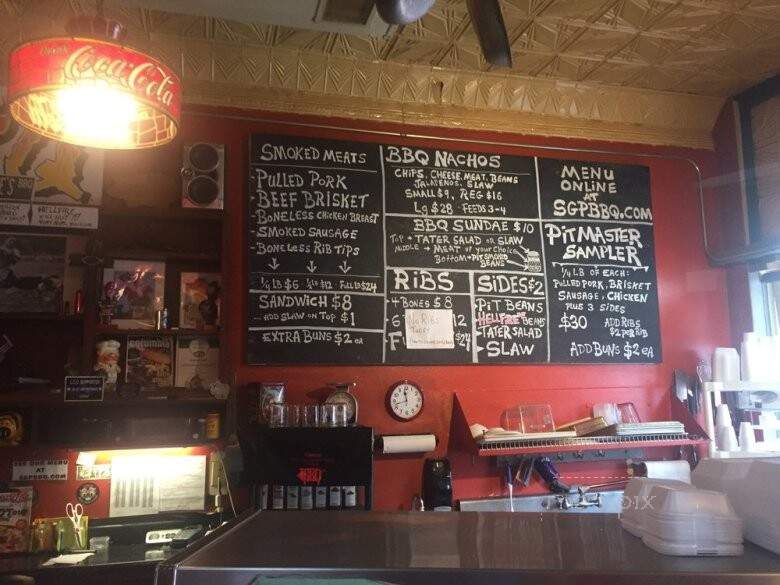 Drink
Coca-Cola
SMOKED MEATS
PULLED PORK
- BEEF BRISKET
- BONELESS CHICKEN BREAST
- SMOKED SAUSAGE
- BONELESS RIB TIPS
1/4 LB $6 1/2 LB $12 FULL LB $24
SANDWICH $8
... ADD SLAW ON TOP $1
EXTRA BUNS $2 EA
BBQ NACHOS
CHIPS, CHEESE, MEAT, BEANS
JALAPENOS, SLAW
SMALL $9, REG $16
LG $28 - FEEDS 3-4
BBQ SUNDAE $10
TOP → TATER SALAD OR SLAW
MIDDLE → MEAT OF YOUR CHOICE
BOTTOM → PIT SMOKED
BEANS
RIBS
4 BONES $8
NO RIBS
TODAY
SIDES $2
PIT BEANS
HELLFIRE BEANS
TATER SALAD
SLAW
MENU
ONLINE
AT
SGPBBQ.COM
PITMASTER
SAMPLER
1/4 LB OF EACH:
PULLED PORK, BRISKET
SAUSAGE, CHICKEN
PLUS 3 SIDES
$30 ADD RIBS
$2 PER RIB
ADD BUNS $2 EA
HELLFIRE
columbia
SEE OUR MENU
AT
SGPBBQ.COM
BBQ